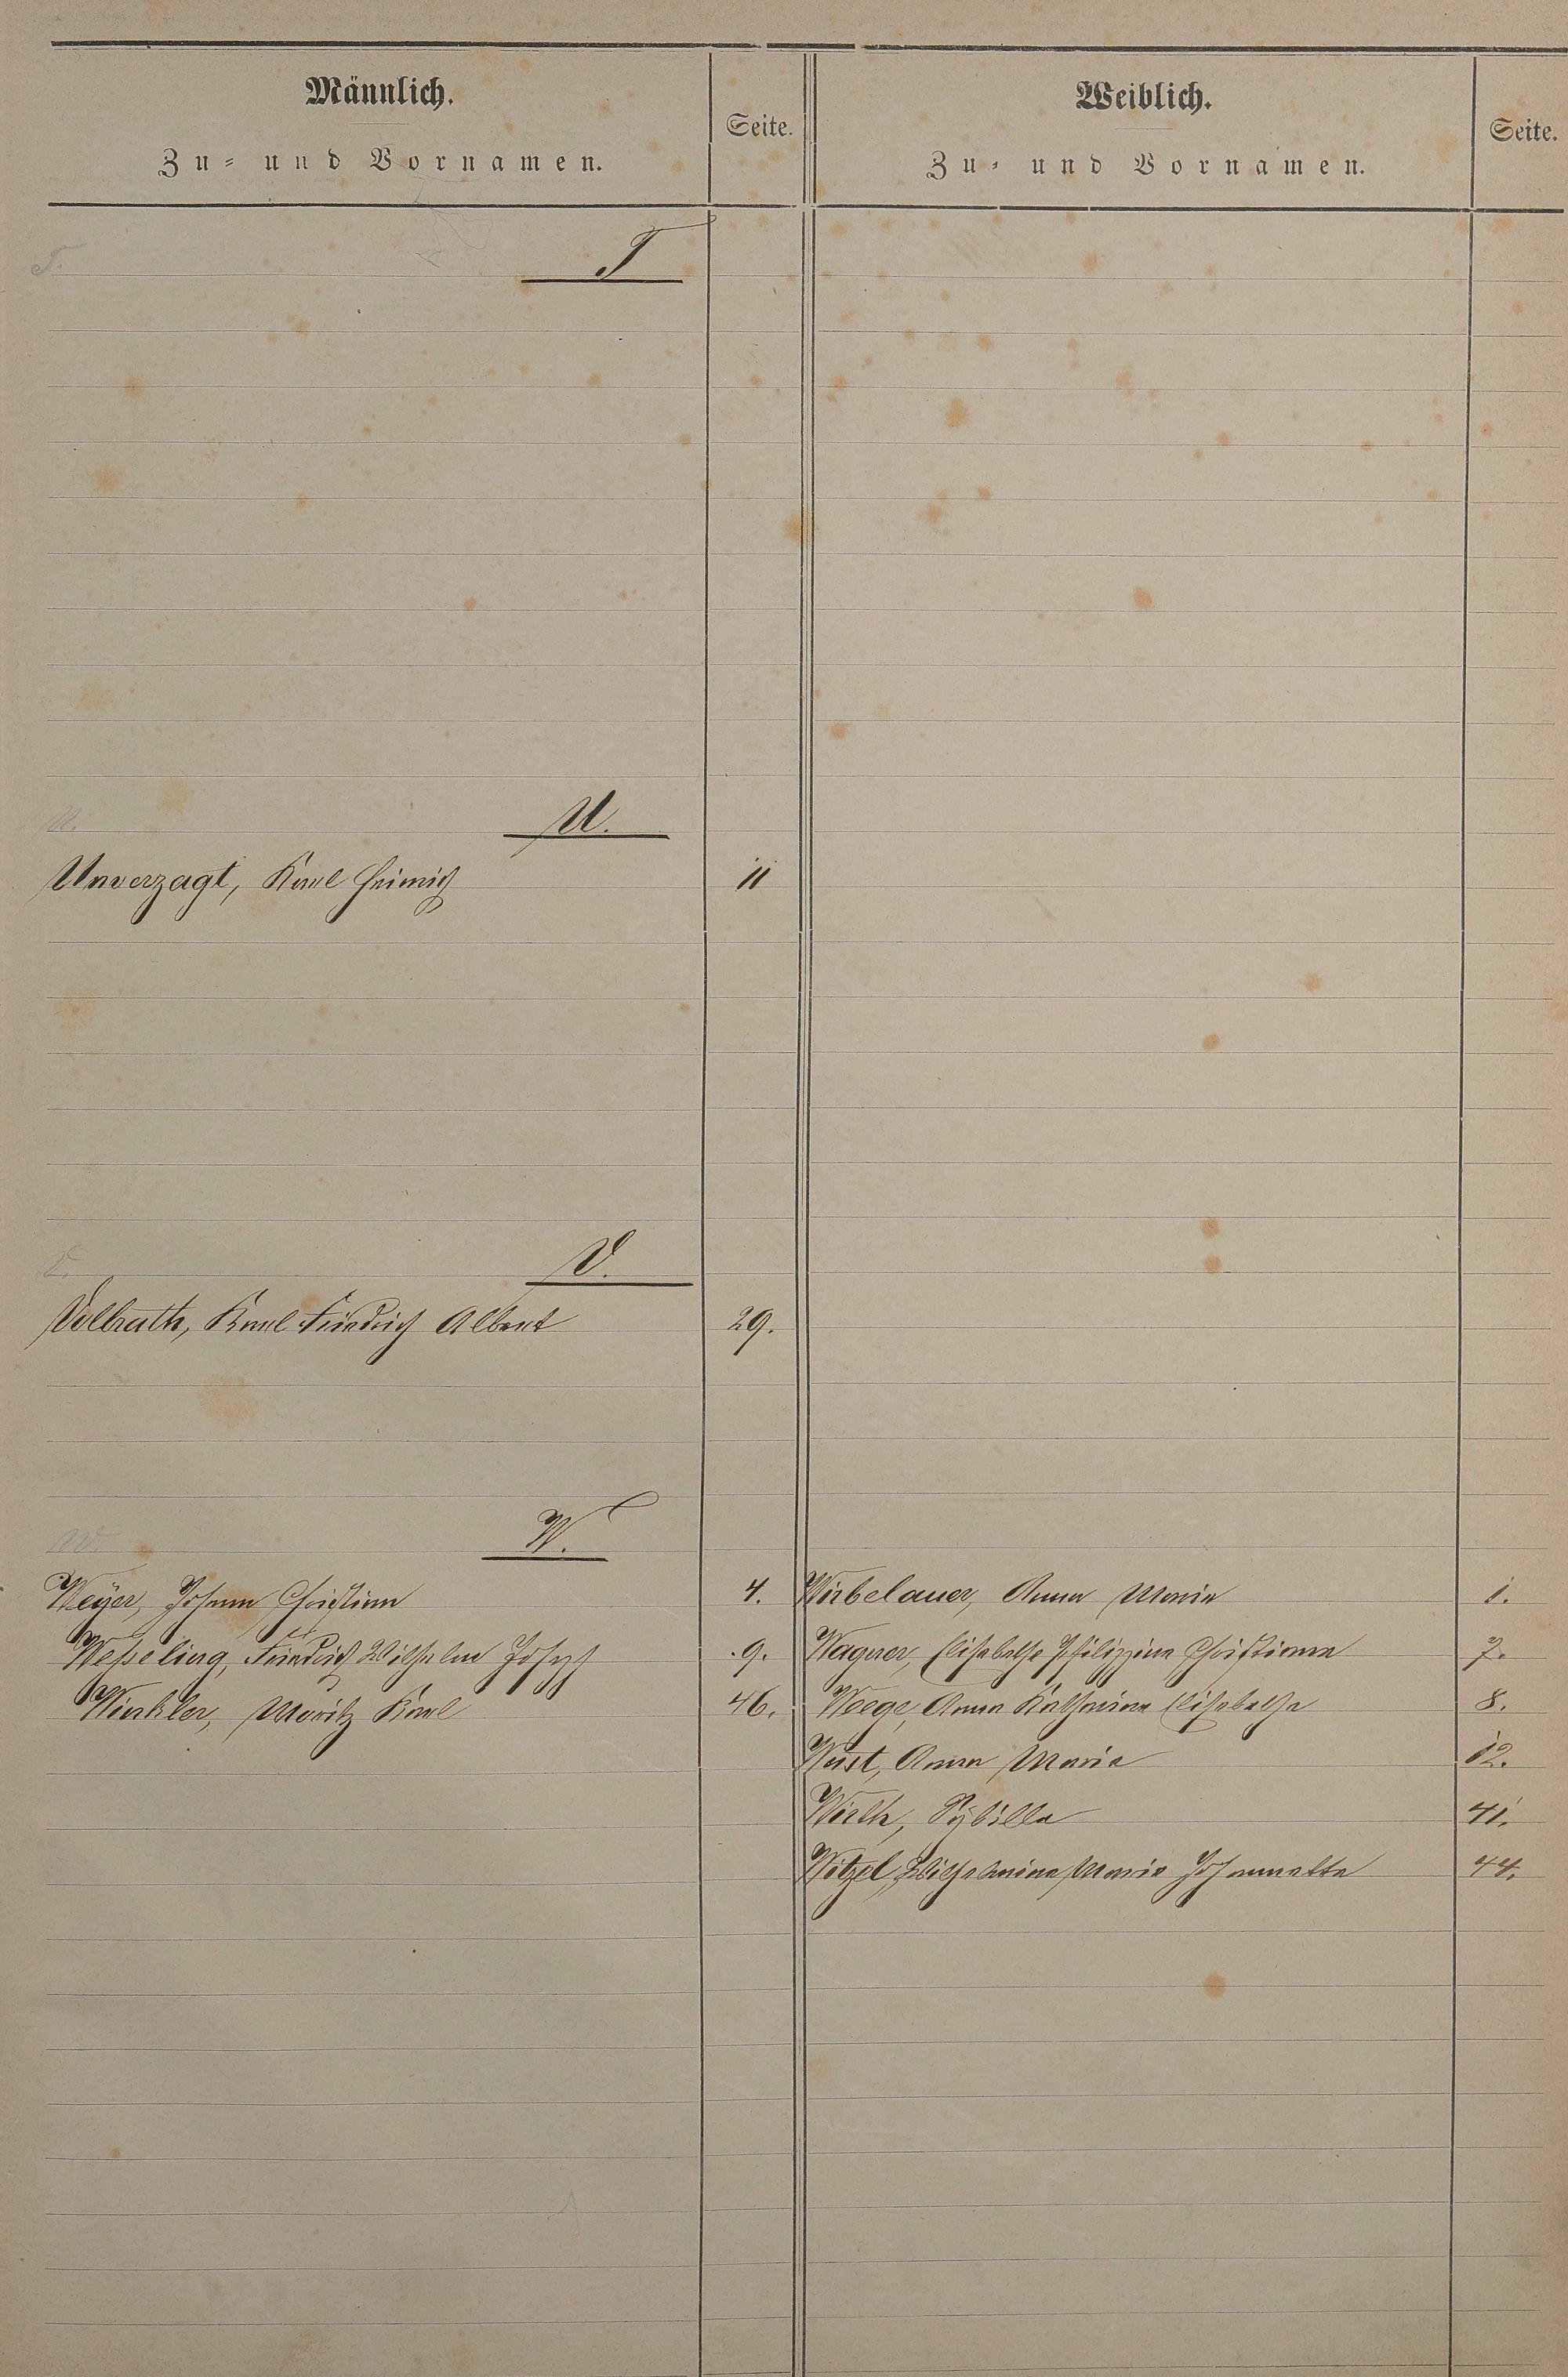 Männlich.
Zu- und Vornamen.
Seite.
Weiblich.
Zu- und Vornamen.
Seite.
T.
T
U.
U.
Unverzagt, Karl Heinrich 11
V.
V.
Volrath, Karl Friedrich Albert 29.
W.
W.
Weÿer, Johann Christian 4.
Weßeling, Friedrich Wilhelm Joseph 9.
Winkler, Moritz Karl 46.
Wirbelauer, Anna Maria 1.
Wagner, Elisabethe Philippine Christiane 7.
Weege, Anna Katharina Elisabetha 8.
Wust, Anna Maria 12.
Wirth, Sÿbilla 41.
Witzel, Wilhelmine Marie Johannette 44.